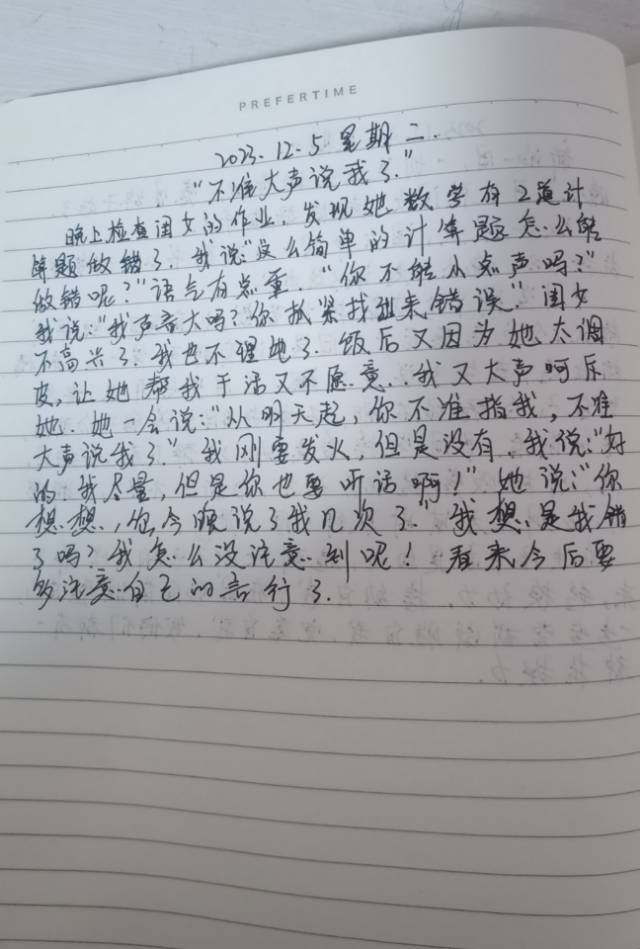 PREFERTIME
2023.12.5 星期二.
"不准大声说我了."
晚上检查闺女的作业,发现她数学有2道计
算题做错了.我说:"这么简单的计算题怎么能
做错呢?"语气有点重."你不能小点声吗?"
我说:"我声音大吗?你抓紧找出来错误."闺女
不高兴了.我也不理她了.饭后又因为她太调
皮,让她帮我干活又不愿意.我又大声呵斥
她.她一会说:"从明天起,你不准指我,不准
大声说我了."我刚要发火,但是没有.我说:"好
的.我尽量,但是你也要听话啊!"她说:"你
想想,你今晚说了我几次了."我想,是我错
了吗?我怎么没注意到呢!看来今后要
多注意自己的言行了.